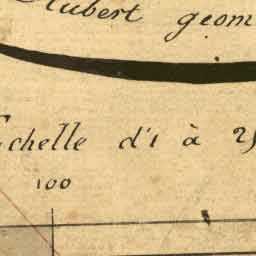 Aubert géom
Echelle d'1 à 25
100